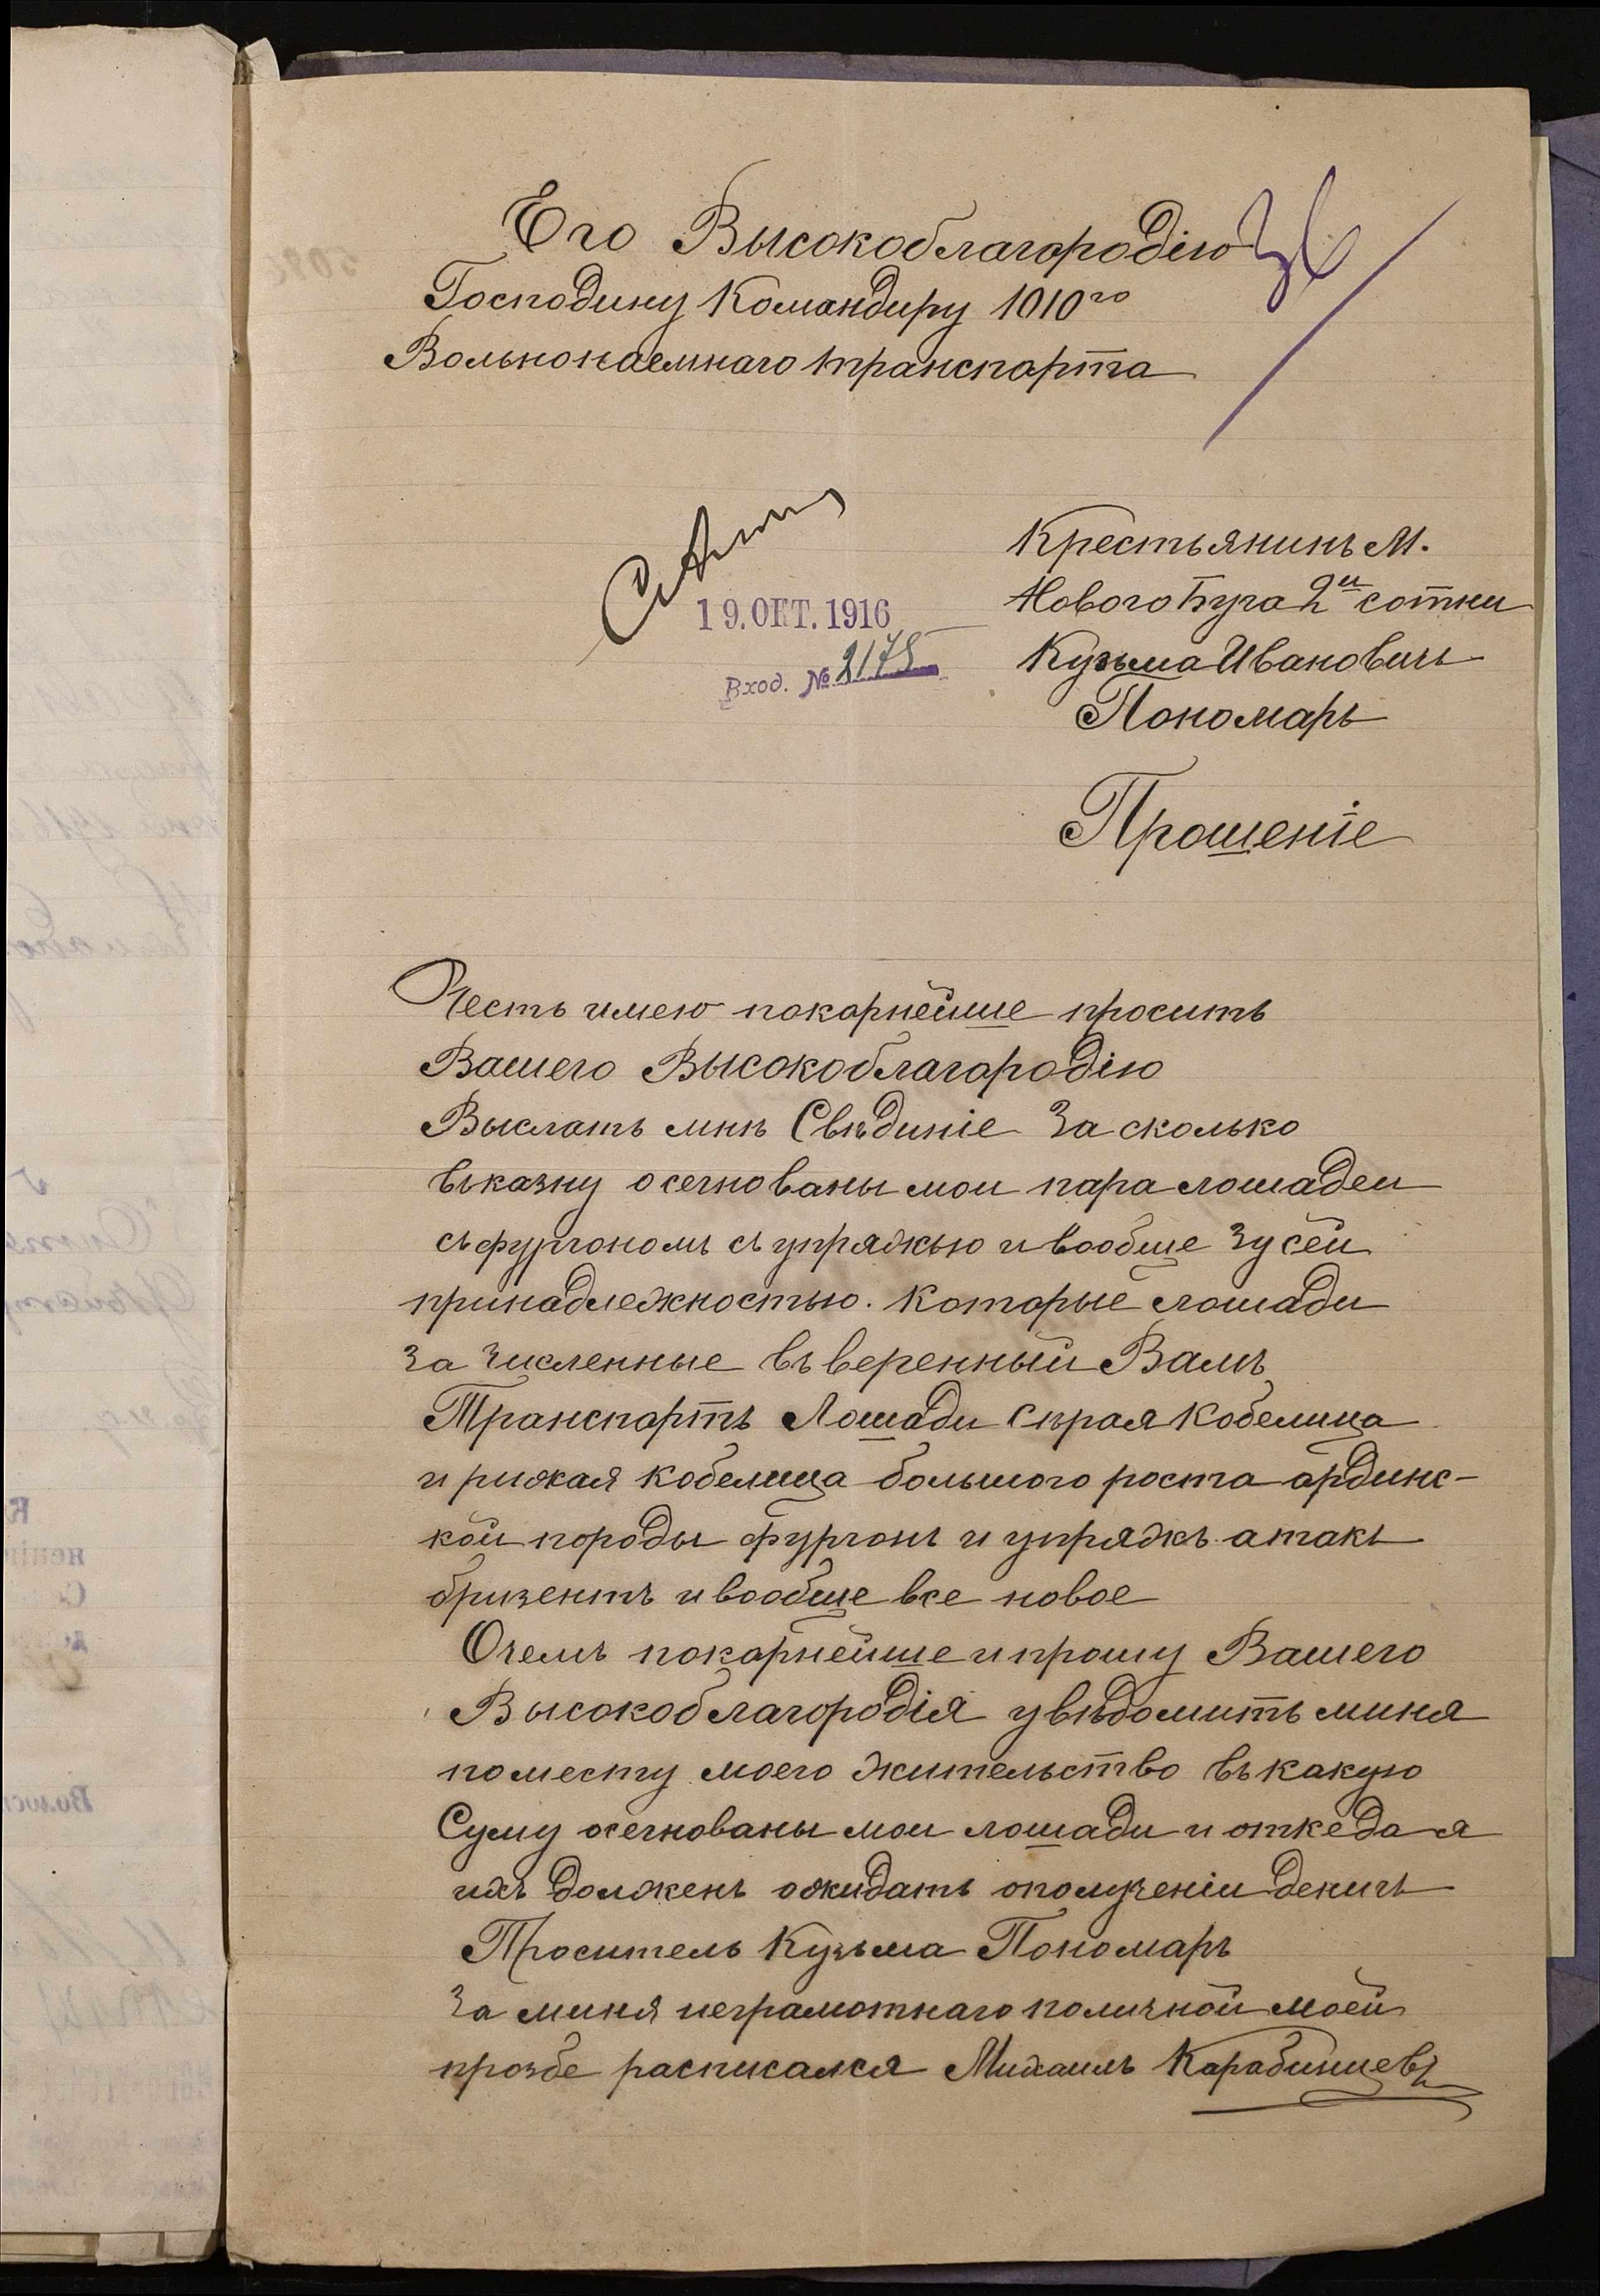 Его Высокоблагородію
Господину Командиру 1010го
Вольнонаемнаго транспорта
19.ОКТ.1916
Вход. № 2175
Крестьянинъ М.
Нового Буга 2й сотни
Кузьма Ивановичъ
Пономарь
Прошеніе
Честь имею покорнейше просить
Вашего Высокоблагородію
Выслать мнѣ Свѣдиніе За сколько
въ казну осечнованы мои пара лошадеи
съ фургономъ съ упряжью и вообще зусей
принадлежностью. Которые лошади
За численные въ веренный Вамъ
Транспортъ Лошади Сѣрая Кобелица
и рижая кобелица большого роста ардинс-
кой породы фургонъ и упряжъ атакъ
бризентъ и вообще все новое
Очемъ покорнейше и прошу Вашего
Высокоблагородія увѣдомить миня
по месту моего жительство въ какую
Суму осечнованы мои лошади и откеда я
ихъ долженъ ожидать ополученіи денигъ
Проситель Кузьма Пономарь
За миня неграмотнаго поличной моей
прозбе расписался Михаилъ Карабинцевъ